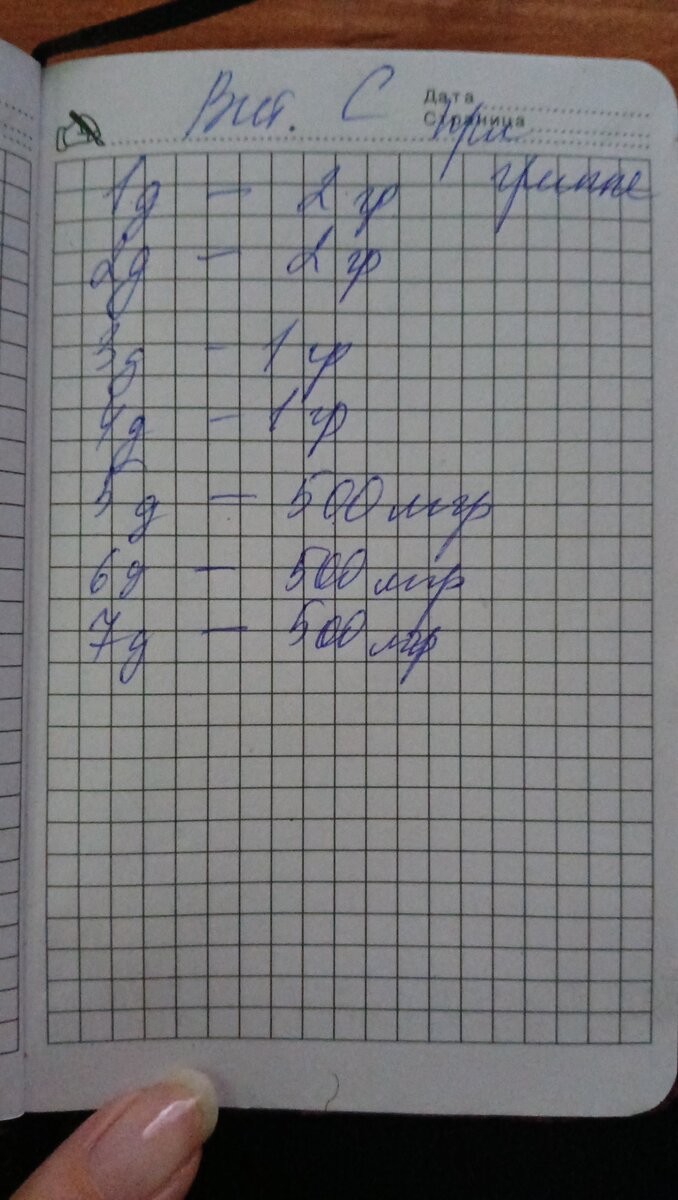 Дата
Страница
Вит. С при
гриппе
1д – 2 гр
2д – 2 гр
3д – 1 гр
4д – 1 гр
5д – 500 мгр
6д – 500 мгр
7д – 500 мгр